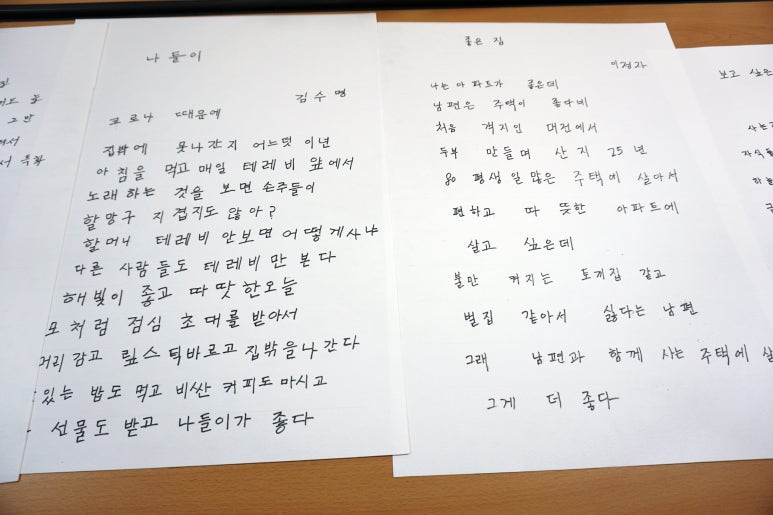 나들이
김수명
코로나 때문에
집밖에 못나간지 어느덧 이년
아침을 먹고 매일 테레비 앞에서
노래하는 것을 보면 손주들이
할망구 지겹지도 않아?
할머니 테레비 안보면 어떻게사냐
다른 사람들도 테레비만 본다
해빛이 좋고 따땃한오늘
모처럼 점심 초대를 받아서
머리감고 맆스틱바르고 집밖을나간다
있는 밥도 먹고 비싼 커피도 마시고
선물도 받고 나들이가 좋다
좋은 집
이정자
나는 아파트가 좋은데
남편은 주택이 좋다네
처음 객지인 대전에서
두부 만들며 산지 25년
80 평생 일많은 주택에 살아서
편하고 따뜻한 아파트에
살고 싶은데
불만 켜지는 토끼집 같고
벌집 같아서 싫다는 남편
그래 남편과 함께 사는 주택에
그게 더 좋다
보고 싶은